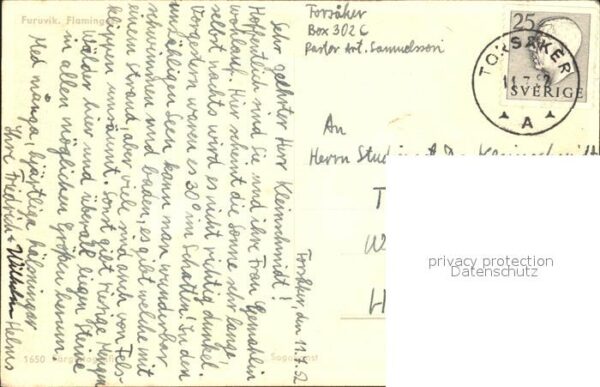 Furuvik. Flamingo
Torsåker
Box 302 C
Pastor Art. Samuelsson
25
TORSÅKER
11.7.52
SVERIGE
A
Torsåker, den 11.7.52
Sehr geehrter Herr Kleinschmidt!
Hoffentlich sind Sie und ihre Frau Gemahlin
wohlauf. Hier scheint die Sonne sehr lange,
selbst nachts wird es nicht richtig dunkel.
Vorgestern waren es 30° im Schatten! In den
unzähligen Seen kann man wunderbar
schwimmen und baden, es gibt welche mit
einem Strand, aber viel sind auch von Fels-
klippen umsäumt. Sonst gibt Riesige Mengen
Wälder hier und überall liegen Steine
in allen möglichen Größen herum.
Med många, hjärtliga hälsningar
Ihre Friedrich + Wilhelm Helms
An
Herrn
privacy protection
Datenschutz
1650